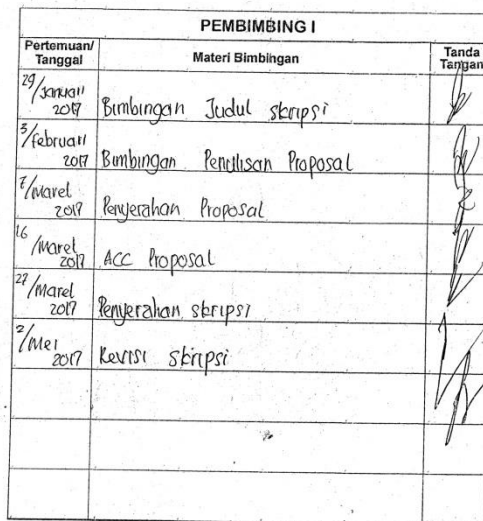 PEMBIMBING I
Pertemuan/ Tanggal
Materi Bimbingan
Tanda Tangan
29/Januari 2017
Bimbingan Judul skripsi
3/februari 2017
Bimbingan Penulisan Proposal
7/Maret 2017
Penyerahan Proposal
16/Maret 2017
ACC Proposal
27/Maret 2017
Penyerahan skripsi
2/Mei 2017
Revisi skripsi